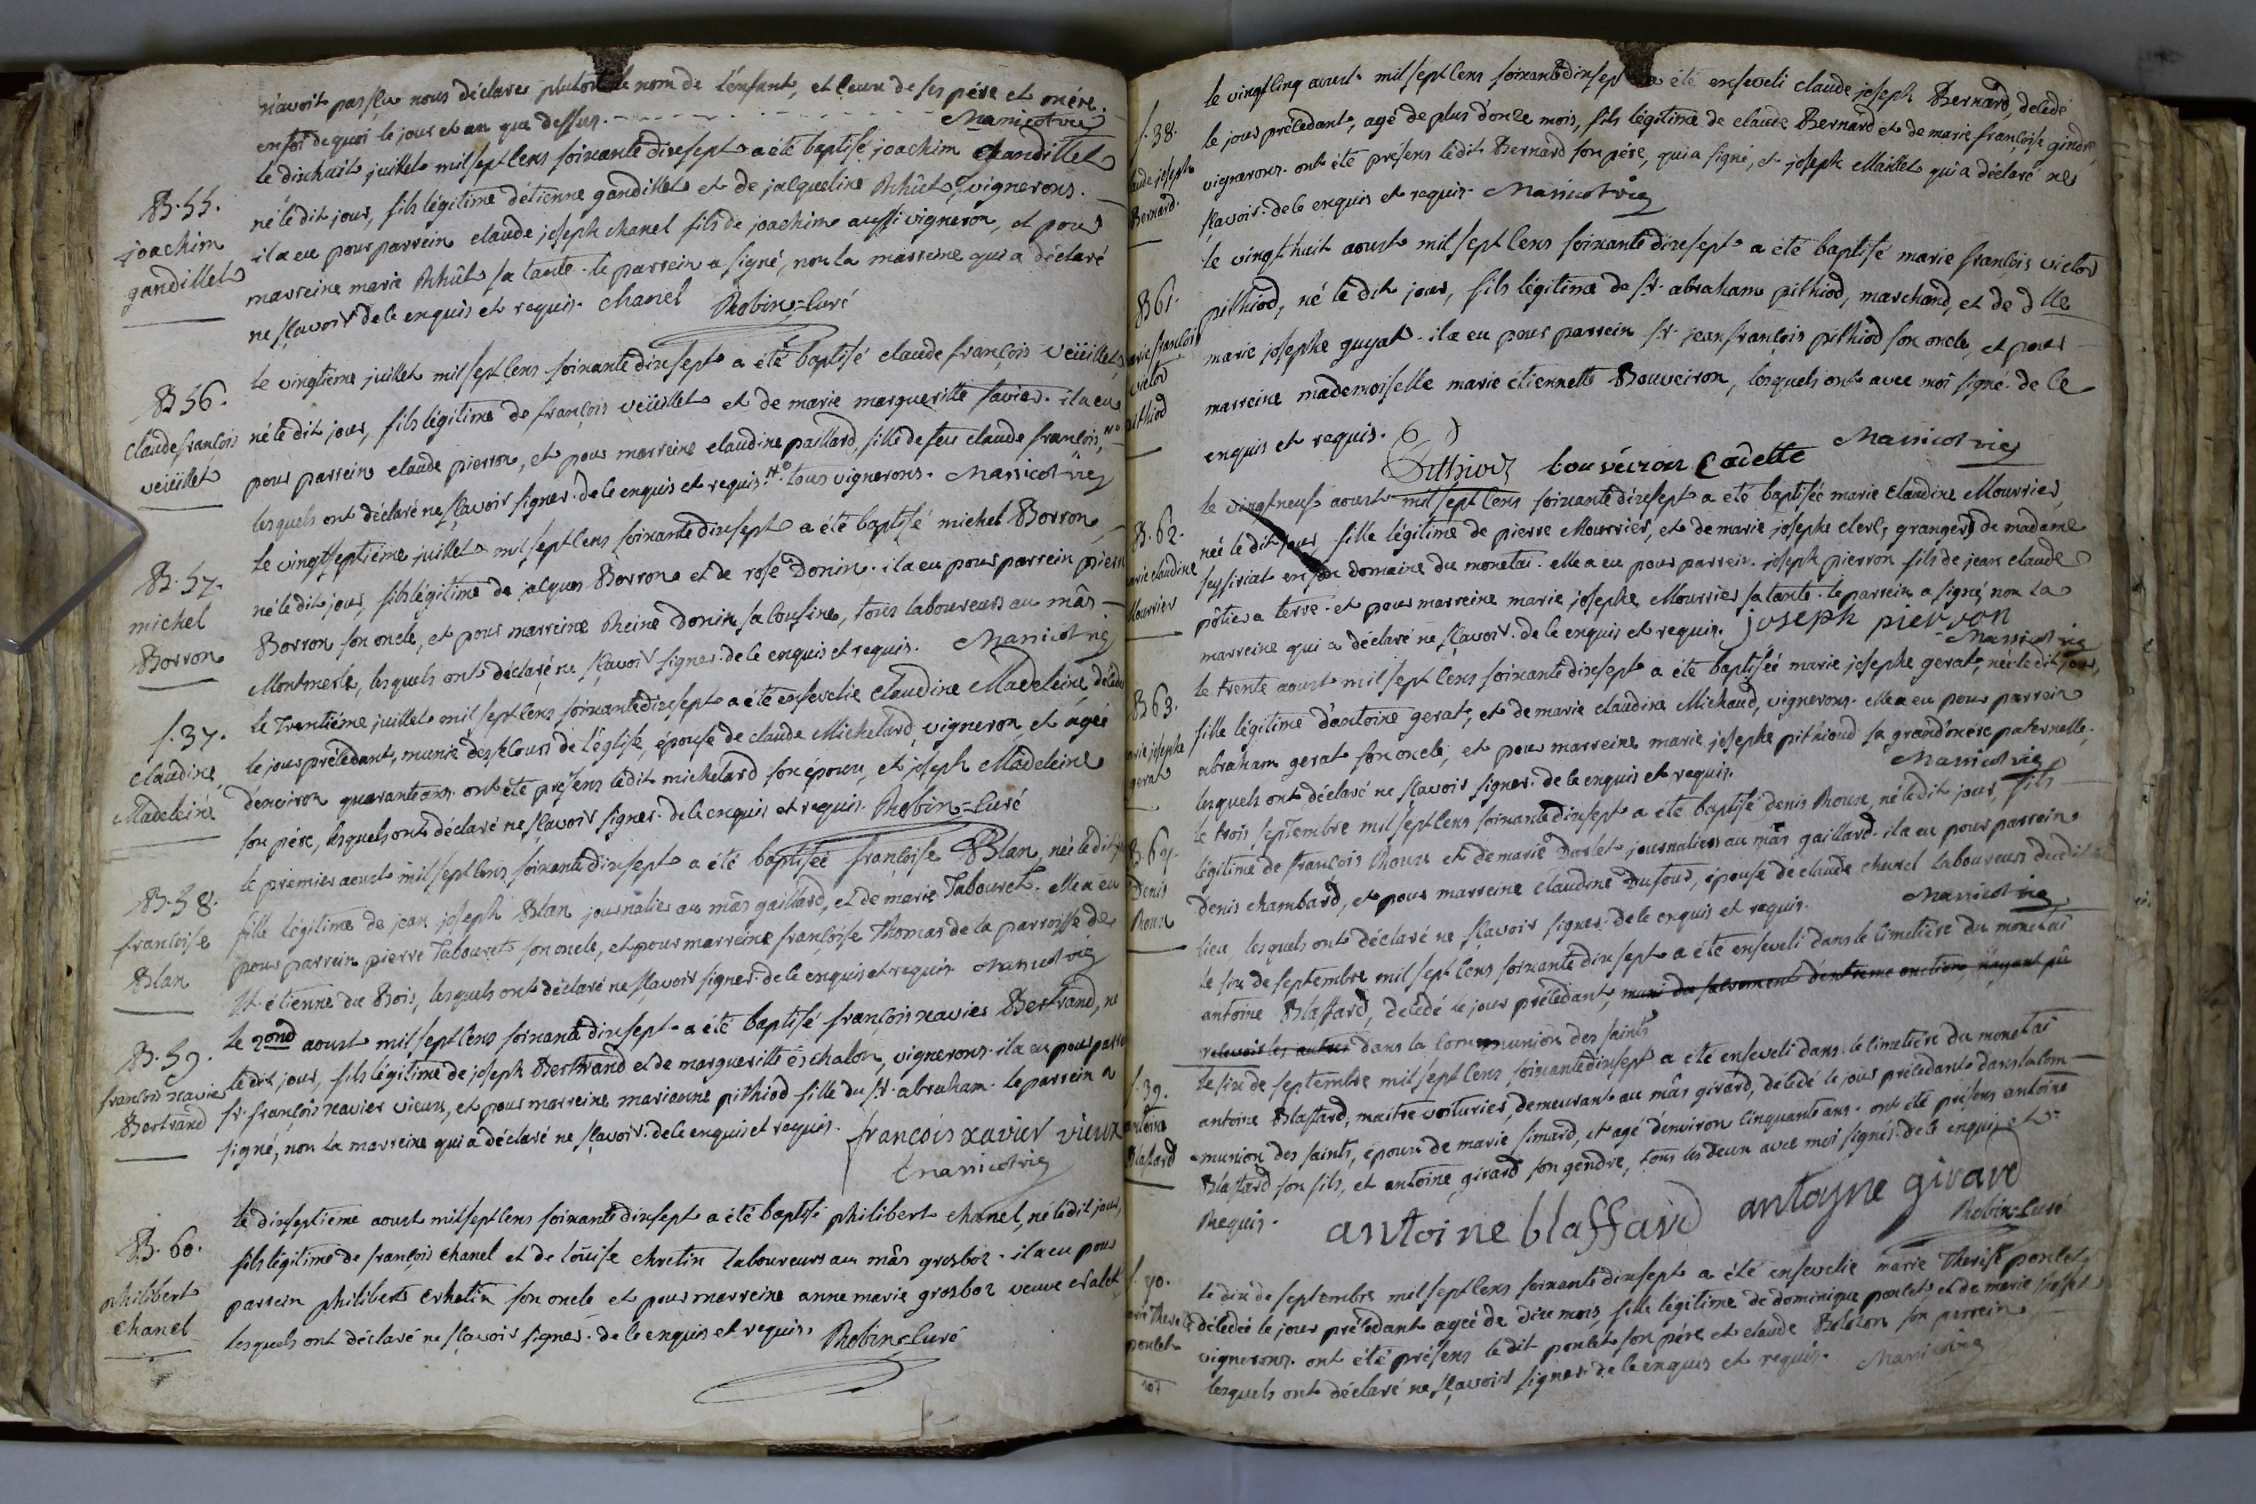 n'avoit pas sçu nous déclarer plutost le nom de l'enfant, et ceux de ses père et mère.
en foi de quoi le jour et an que dessus. Manicot vic
B. 55.
joachim
gandillet
le dixhuit juillet mil sept cens soixante dix sept a été baptisé joachim Gandillet
né le dit jour, fils légitime d'étienne gandillet et de jacqueline Rhûet, vignerons.
il a eu pour parrein claude joseph chanel fils de joachim aussi vigneron, et pour
marreine marie Rhûet sa tante. le parrein a signé, non la marreine qui a déclaré
ne sçavoir de ce enquis et requis. chanel Robin=curé
B 56.
claude françois
veüillet
le vingtième juillet mil sept cens soixante dix sept a été baptisé claude françois veüillet,
né le dit jour, fils légitime de françois veüillet et de marie margueritte favier. il a eu
pour parrein claude pierron, et pour marreine claudine paillard, fille de feu claude françois,
lesquels ont déclaré ne sçavoir signer. de ce enquis et requis. tous vignerons. Manicot vic
B. 57.
michel
Borron
le vingt septième juillet mil sept cens soixante dix sept a été baptisé michel Borron,
né le dit jour, fils légitime de jacques Borron et de rose Donin. il a eu pour parrein pierre
Borron son oncle, et pour marreine Reine Donin sa cousine, tous laboureurs au mâs
Montmerle, lesquels ont déclaré ne sçavoir signer. de ce enquis et requis. Manicot vic
S. 37.
claudine
Madeleine
le trentième juillet mil sept cens soixante dix sept a été ensevelie claudine Madeleine, décédée
le jour précédant, munie des secours de l'église, épouse de claude Michelard, vigneron, et agée
d'environ quarante ans. ont été présens le dit michelard son époux, et joseph Madeleine
son père, lesquels ont déclaré ne sçavoir signer. de ce enquis et requis. Robin=curé
B. 58.
françoise
Blan
le premier aoust mil sept cens soixante dix sept a été baptisée françoise Blan, née le dit jour
fille légitime de jean joseph Blan journalier au mâs gaillard, et de marie Tabouret. elle a eu
pour parrein pierre Tabouret son oncle, et pour marreine françoise Thomas de la parroisse de
St. étienne du Bois, lesquels ont déclaré ne sçavoir signer. de ce enquis et requis. Manicot vic
B. 59.
françois xavier
Bertrand
le 2ond aoust mil sept cens soixante dix sept a été baptisé françois xavier Bertrand, né
le dit jour, fils légitime de joseph Bertrand et de margueritte échalon, vignerons. il a eu pour parrein
sr. françois xavier vieux, et pour marreine marianne pithiod fille du sr. abraham. le parrein a
signé, non la marreine qui a déclaré ne sçavoir. de ce enquis et requis. françois xavier vieux
Manicot vic
B. 60.
philibert
chanel
le dix septième aoust mil sept cens soixante dix sept a été baptisé philibert chanel, né le dit jour,
fils légitime de françois chanel et de loüise chretin laboureurs au mâs grosboz. il a eu pour
parrein philibert chretin son oncle et pour marreine anne marie grosboz veuve chalet,
lesquels ont déclaré ne sçavoir signer. de ce enquis et requis. Robin=curé
S. 38.
aude joseph
Bernard.
le vingt cinq aoust mil sept cens soixante dix sept a été enseveli claude joseph Bernard, décédé
le jour précédant, agé de plus d'onze mois, fils légitime de claude Bernard et de marie françoise gindre,
vignerons. ont été présens le dit Bernard son père, qui a signé, et joseph Maillet qui a déclaré ne
sçavoir. de ce enquis et requis. Manicot vic
B 61.
arie françois
victor
pithiod
le vingt huit aoust mil sept cens soixante dix sept a été baptisé marie françois victor
pithiod, né le dit jour, fils légitime de sr. abraham pithiod, marchand, et de dlle
marie josephe guyat. il a eu pour parrein sr. jean françois pithiod son oncle, et pour
marreine mademoiselle marie étiennette Bouveiron, lesquels ont avec moi signé. de ce
enquis et requis.
Pithiod bouveiron Cadette Manicot vic
B. 62.
arie claudine
Mourrier
le vingt neuf aoust mil sept cens soixante dix sept a été baptisée marie claudine Mourrier,
née le dit jour, fille légitime de pierre Mourrier, et de marie josephe clerc, grangers de madame
seyssiriat en son domaine du monetai. elle a eu pour parrein joseph pierron fils de jean claude
pôtier a terre. et pour marreine marie josephe Mourrier sa tante. le parrein a signé non la
marreine qui a déclaré ne sçavoir. de ce enquis et requis. joseph pierron
Manicot vic
B 63.
arie josephe
gerat
le trente aoust mil sept cens soixante dix sept a été baptisée marie josephe gerat, née le dit jour,
fille légitime d'antoine gerat, et de marie claudine Michaud, vignerons. elle a eu pour parrein
abraham gerat son oncle, et pour marreine marie josephe pithioud sa grand'mère paternelle,
lesquels ont déclaré ne sçavoir signer. de ce enquis et requis. Manicot vic
B. 64.
Denis
Roux
le trois septembre mil sept cens soixante dix sept a été baptisé denis Roux, né le dit jour, fils
légitime de françois Roux et de marie Darlet journaliers au mâs gaillard. il a eu pour parrein
denis chambard, et pour marreine claudine Dufour, épouse de claude churel laboureur du dit
lieu, lesquels ont déclaré ne sçavoir signer. de ce enquis et requis. Manicot vic
le six de septembre mil sept cens soixante dix sept a été enseveli dans le cimetière du monetai
antoine Blaffard, décédé le jour précédant, muni du sacrement d'extreme onction n'ayant pû
recevoir les autres dans la communion des saints
S. 39.
antoine
Blaffard
le six de septembre mil sept cens soixante dix sept a été enseveli dans le cimetière du monetai
antoine Blaffard, maitre voiturier, demeurant au mâs girard, décédé le jour précédant dans la com-
munion des saints, époux de marie simard, et agé d'environ cinquante ans. ont été présens antoine
Blaffard son fils, et antoine girard son gendre, tous les deux avec moi signés. de ce enquis et
Requis. antoine blaffard antoyne girard
Robin=curé
S. 40.
arie Therese
poulet
le dix de septembre mil sept cens soixante dix sept a été ensevelie marie Therese poulet,
décédée le jour précédant agée de dix mois, fille légitime de dominique poulet et de marie
vignerons. ont été présens le dit poulet son père et claude Bolozon son parrein
lesquels ont déclaré ne sçavoir signer. de ce enquis et requis. Manicot vic
107